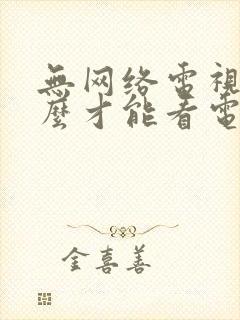 無网络電視
麽才能看電
金喜善